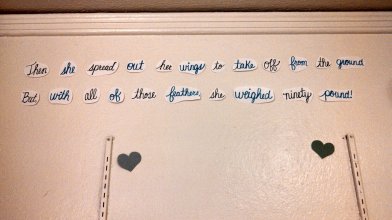 Then she spread out her wings to take off from the ground
But with all of those feathers, she weighed ninety pound!